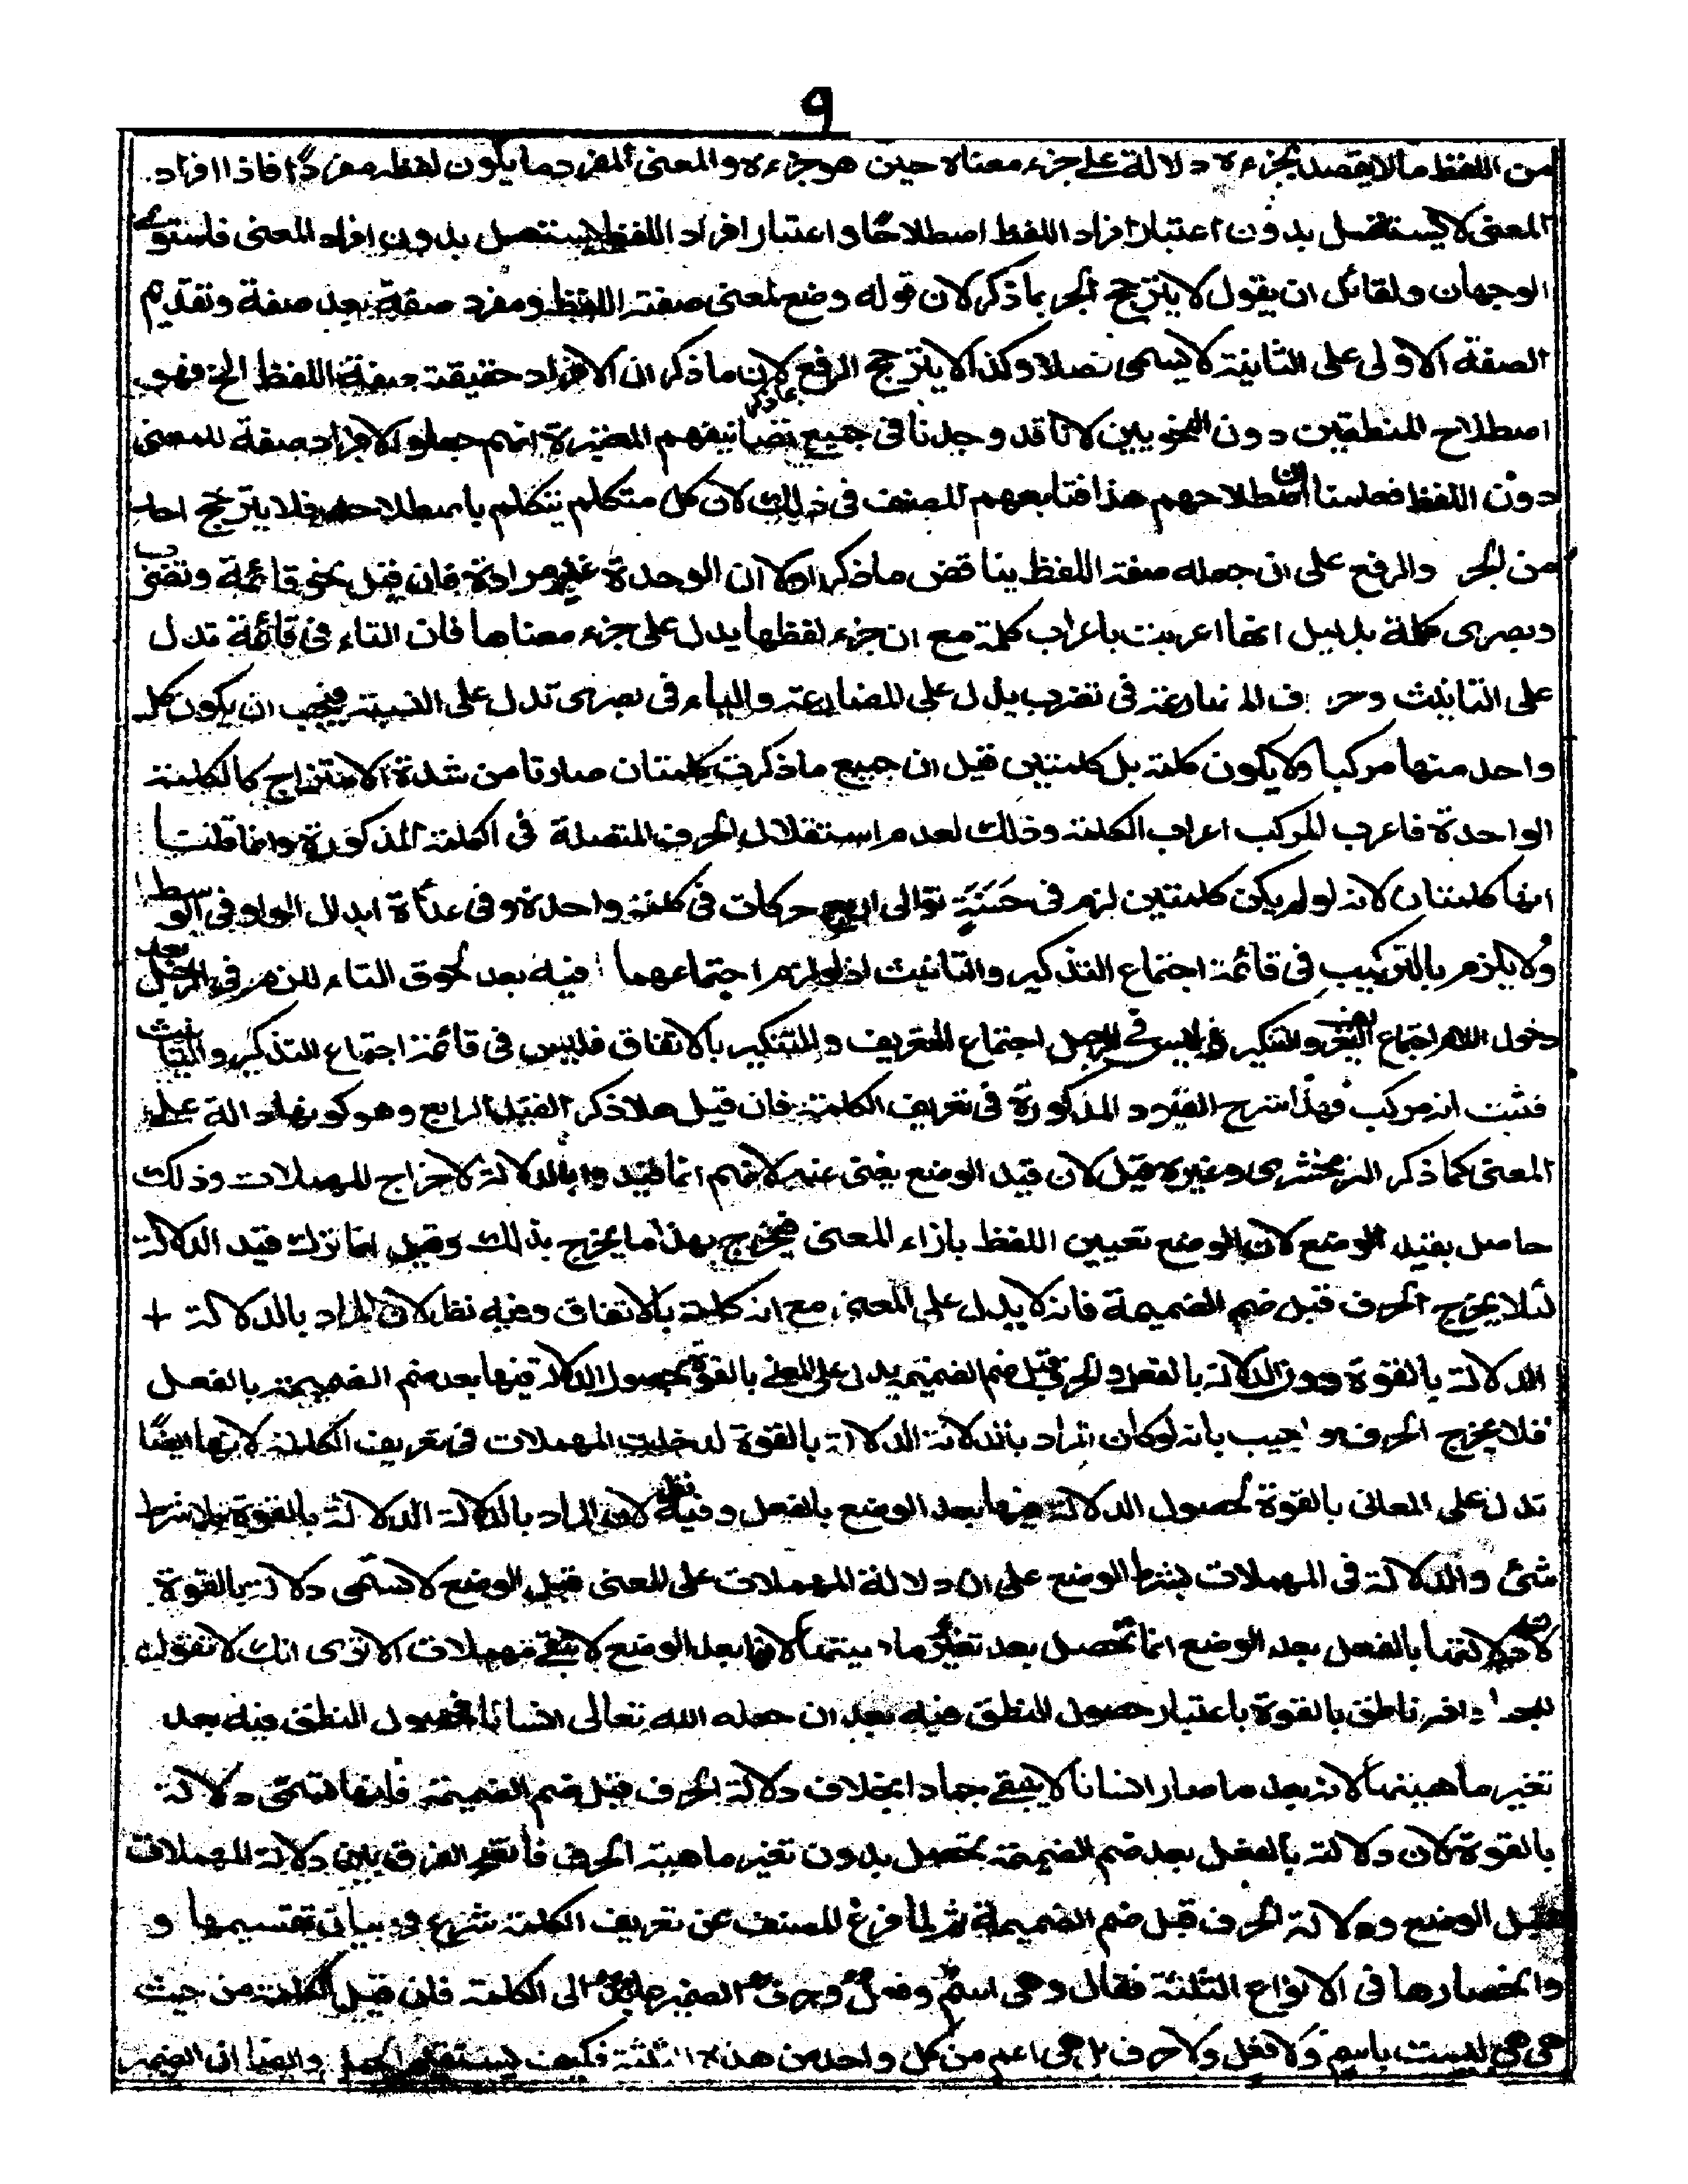 ٩
من اللفظ ما لا يقصد بجزءه دلالة على جزء معناه حين هو جزءه والمعنى المفرد ما يكون لفظه مفردًا فاذا افراد
المعنى لا يستقل بدون اعتبار افراد اللفظ اصطلاحًا واعتبار افراد اللفظ لا يستحصل بدون افراد المعنى فاستوى
الوجهان ولقائل ان يقول لا يترجح الجر بما ذكر لان قوله وضع لمعنى صفة اللفظ ومفرد صفة بعد صفة وتقديم
الصفة الاولى على الثانية لا يسمى فصلا وكذا لا يترجح الرفع لان ما ذكر ان الافراد حقيقة صفة اللفظ الخ فهو
اصطلاح المنطقين دون النحويين لانا قد وجدنا فى جميع تصانيفهم المعتبرة انهم جعلوا الافراد صفة للمعنى
دون اللفظ فعلمنا ان اصطلاحهم هذا فتابعهم المصنف فى ذلك لان كل متكلم يتكلم باصطلاحه فلا يترجح احد
من الجر والرفع على ان جعله صفة اللفظ يناقض ما ذكر اولا ان الوحدة غير مرادة فان قيل نحو قائمة وتضرب
وبصرى كلمة بدليل انها اعربت باعراب كلمة مع ان جزء لفظها يدل على جزء معناها فان التاء فى قائمة تدل
على التانيث وحرف المضارعة فى تضرب يدل على المضارعة والياء فى بصرى تدل على النسبة فيجب ان يكون كل
واحد منها مركبا ولا يكون كلمة بل كلمتين قيل ان جميع ما ذكرت كلمتان صارتا من شدة الامتزاج كالكلمة
الواحدة فاعرب المركب اعراب الكلمة وذلك لعدم استقلال الحرف المتصلة فى الكلمة المذكورة وانما قلنا
انها كلمتان لانه لو لم يكن كلمتين لزم فى حَسَنَةٍ توالى اربع حركات فى كلمة واحدة وفى عداة ابدال الواو فى الوسط
ولا يلزم بالتركيب فى قائمة اجتماع التذكير والتانيث اذ لو لزم اجتماعهما فيه بعد لحوق التاء للزم فى الرجل بعد
دخول اللام اجتماع التعريف والتنكير فليس فى الرجل اجتماع التعريف والتنكير بالاتفاق فليس فى قائمة اجتماع التذكير والتانيث
فثبت انه مركب فهذا شرح القيود المذكورة فى تعريف الكلمة فان قيل هلا ذكر القيد الرابع وهو كونها دالة على
المعنى كما ذكر الزمخشرى وغيره قيل لان قيد الوضع يغنى عنه لانهم انما قيدوا بالدلالة لاخراج المهملات وذلك
حاصل بقيد الوضع لان الوضع تعيين اللفظ بازاء المعنى فيخرج بهذا ما يخرج بذلك وقيل انما ترك قيد الدلالة
لئلا يخرج الحرف قبل ضم الضميمة فانه لا يدل على المعنى مع انه كلمة بالاتفاق وفيه نظر لان المراد بالدلالة +
الدلالة بالقوة دون الدلالة بالفعل والحرف قبل ضم الضميمة يدل على المعنى بالقوة لحصول الدلالة فيها بعد ضم الضميمة بالفعل
فلا يخرج الحرف واجيب بانه لو كان المراد بالدلالة الدلالة بالقوة لدخلت المهملات فى تعريف الكلمة لانها ايضًا
تدل على المعانى بالقوة لحصول الدلالة فيها بعد الوضع بالفعل وفيه نظر لان المراد بالدلالة الدلالة بالقوة بلا شرط
شئ والدلالة فى المهملات بشرط الوضع على ان دلالة المهملات على المعنى قبل الوضع لا تسمى دلالة بالقوة
لان دلالتها بالفعل بعد الوضع انما تحصل بعد تغير ماهيتها لانها بعد الوضع لا تبقى مهملات الا ترى انك لا تقول
للجماد انه ناطق بالقوة باعتبار حصول النطق فيه بعد ان جعله الله تعالى انسانا لحصول النطق فيه بعد
تغير ماهيتها لانه بعد ما صار انسانا لا يبقى جمادا بخلاف دلالة الحرف قبل ضم الضميمة فانها تسمى دلالة
بالقوة لان دلالته بالفعل بعد ضم الضميمة تحصل بدون تغير ماهية الحرف فاتضح الفرق بين دلالة المهملات
قبل الوضع ودلالة الحرف قبل ضم الضميمة ثم لما فرغ المصنف عن تعريف الكلمة شرع فى بيان تقسيمها و
وانحصارها فى الانواع الثلثة فقال وهى اسمٌ وفعلٌ وحرفٌ الضمير راجع الى الكلمة فان قيل الكلمة من حيث
هى هى ليست باسم ولا فعل ولا حرف بل هى اعم من كل واحد من هذه الثلثة فكيف يستقيم الحمل وايضا ان الضمير